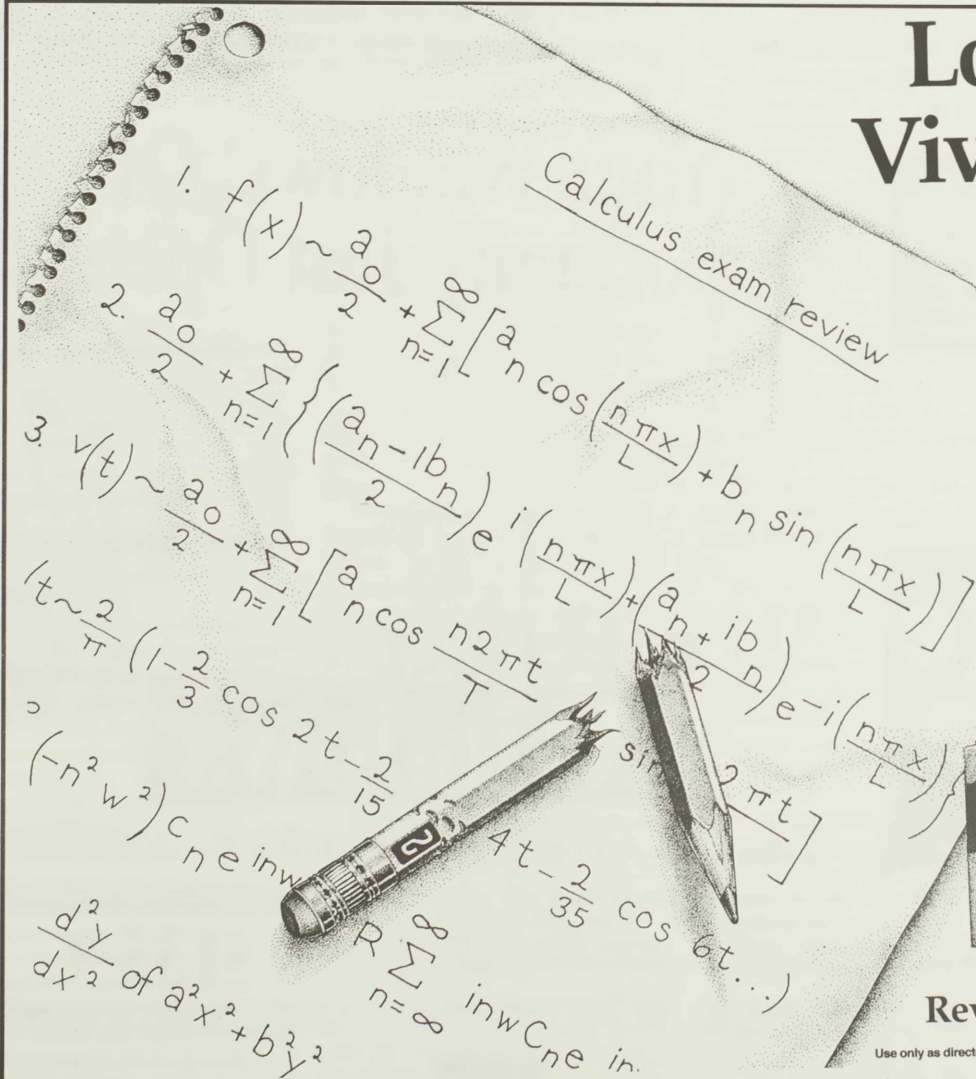 Lo
Viv
Calculus exam review
1. f(x) ~ a₀/2 + ∑ₙ₌₁^∞ [aₙ cos (nπx/L) + bₙ sin (nπx/L)]
2. a₀/2 + ∑ₙ₌₁^∞ {(aₙ - 1bₙ/2) e i(nπx/L) + (aₙ + ibₙ/2) e -i(nπx/L)}
3. v(t) ~ a₀/2 + ∑ₙ₌₁^∞ [aₙ cos n2πt/T sin 2πt]
t ~ 2/π (1 - 2/3 cos 2t - 2/15 4t - 2/35 cos 6t...)
(-n² w²) Cₙe inw R ∑ n=∞ ∞ inw Cₙe in.
d²y/dx² of a²x² + b²y²
2
Rev
Use only as direct